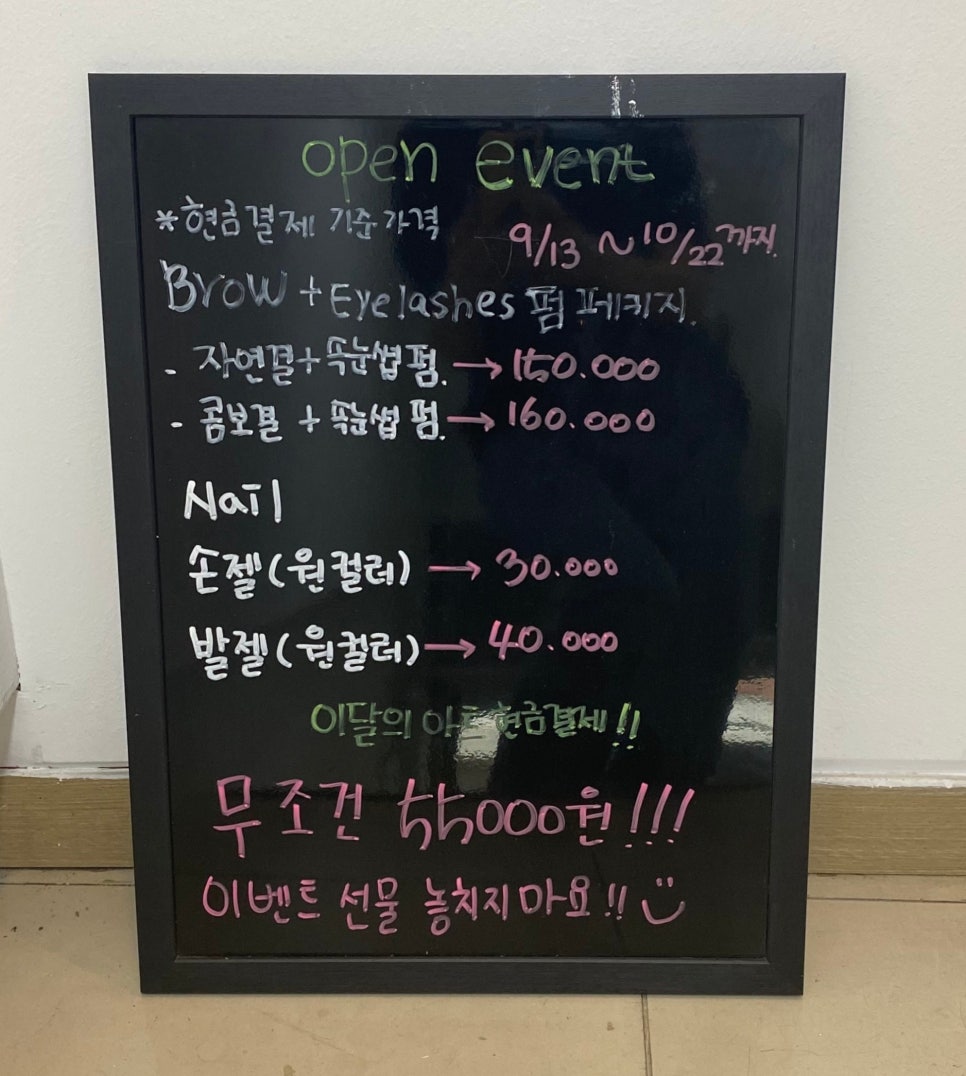 open event
*현금결제 기준가격
9/13 ~ 10/22까지.
Brow + Eyelashes 펌 페키지.
- 자연결 + 속눈썹 펌. → 150.000
- 콤보결 + 속눈썹 펌. → 160.000
Nail
손젤(원컬러) → 30.000
발젤(원컬러) → 40.000
이달의 아트 현금결제!!
무조건 55000원!!!
이벤트 선물 놓치지마요!! :)